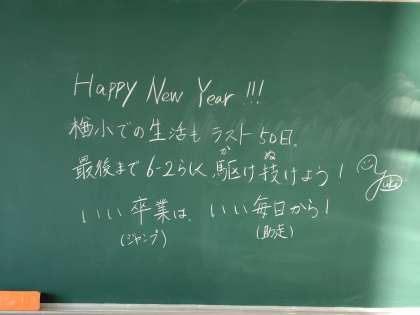 Happy New Year !!!
楢小での生活も ラスト50日。
最後まで6-2らしく駆け抜けよう！
か ぬ
いい卒業は、いい毎日から！
(ジャンプ) (助走)